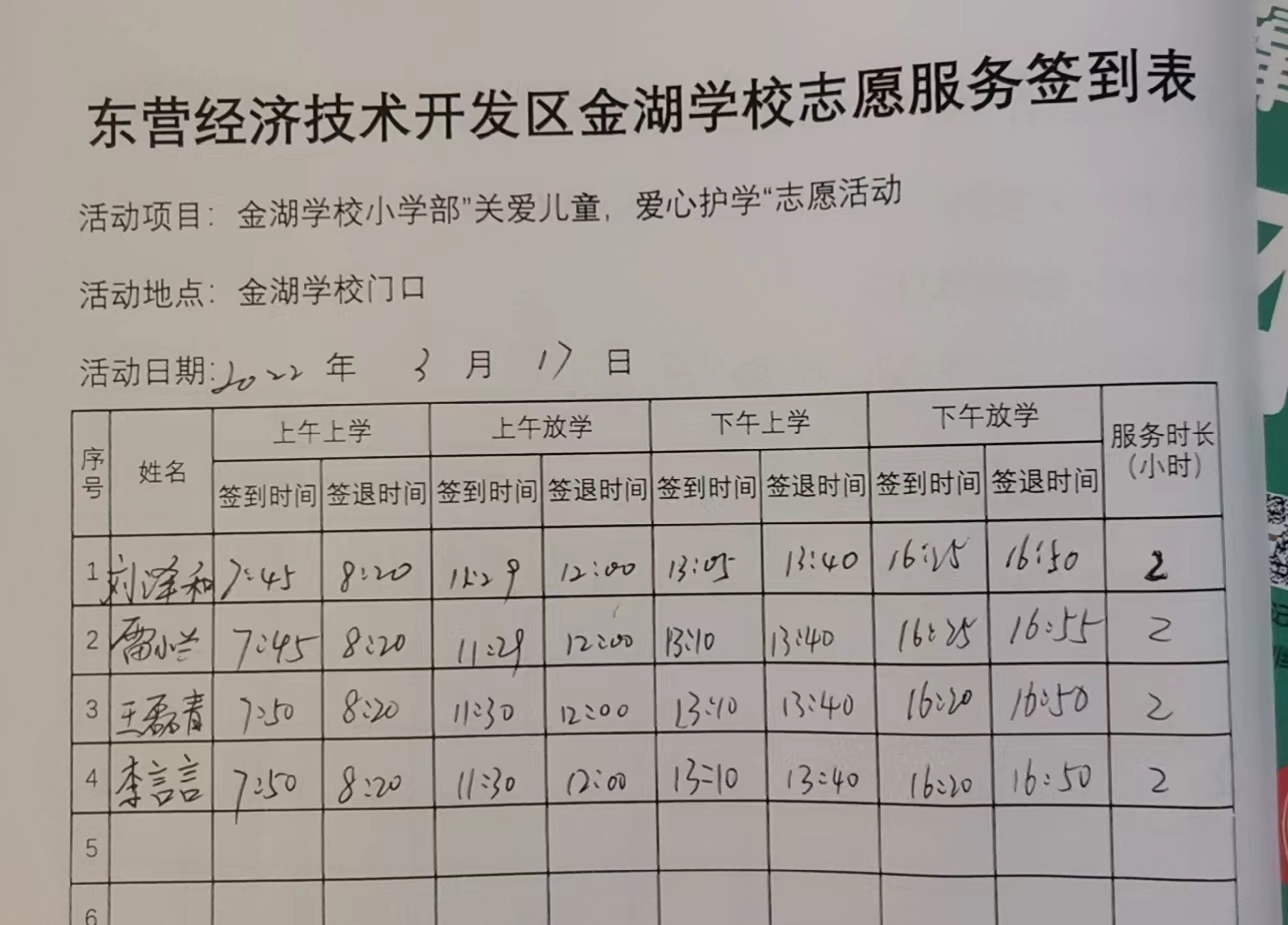 东营经济技术开发区金湖学校志愿服务签到表
活动项目：金湖学校小学部”关爱儿童，爱心护学“志愿活动
活动地点：金湖学校门口
活动日期:2022 年 3 月 17 日
序号 姓名 上午上学 上午放学 下午上学 下午放学 服务时长（小时）
签到时间 签退时间 签到时间 签退时间 签到时间 签退时间 签到时间 签退时间
1 刘泽和 7:45 8:20 11:29 12:00 13:05 13:40 16:25 16:50 2
2 雷小兰 7:45 8:20 11:29 12:00 13:10 13:40 16:25 16:55 2
3 王磊青 7:50 8:20 11:30 12:00 13:10 13:40 16:20 16:50 2
4 李言言 7:50 8:20 11:30 12:00 13:10 13:40 16:20 16:50 2
5
6